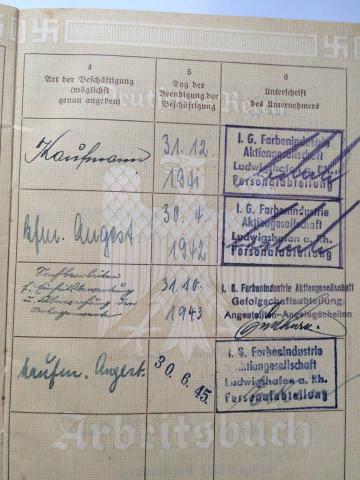 Deutsches Reich
4
Art der Beschäftigung
(möglichst
genau angeben)
5
Tag der
Beendigung der
Beschäftigung
6
Unterschrift
des Unternehmers
Kaufmann
31.12.
1941
I. G. Farbenindustrie
Aktiengesellschaft
Ludwigshafen a. Rh.
Personalabteilung
kfm. Angest.
30. 4.
1942
I. G. Farbenindustrie
Aktiengesellschaft
Ludwigshafen a. Rh.
Personalabteilung
31.10.
1943
I. G. Farbenindustrie Aktiengesellschaft
Gefolgschaftsabteilung
Angestellten-Angelegenheiten
kaufm. Angest.
30. 6. 45.
I. G. Farbenindustrie
Aktiengesellschaft
Ludwigshafen a. Rh.
Personalabteilung
Arbeitsbuch